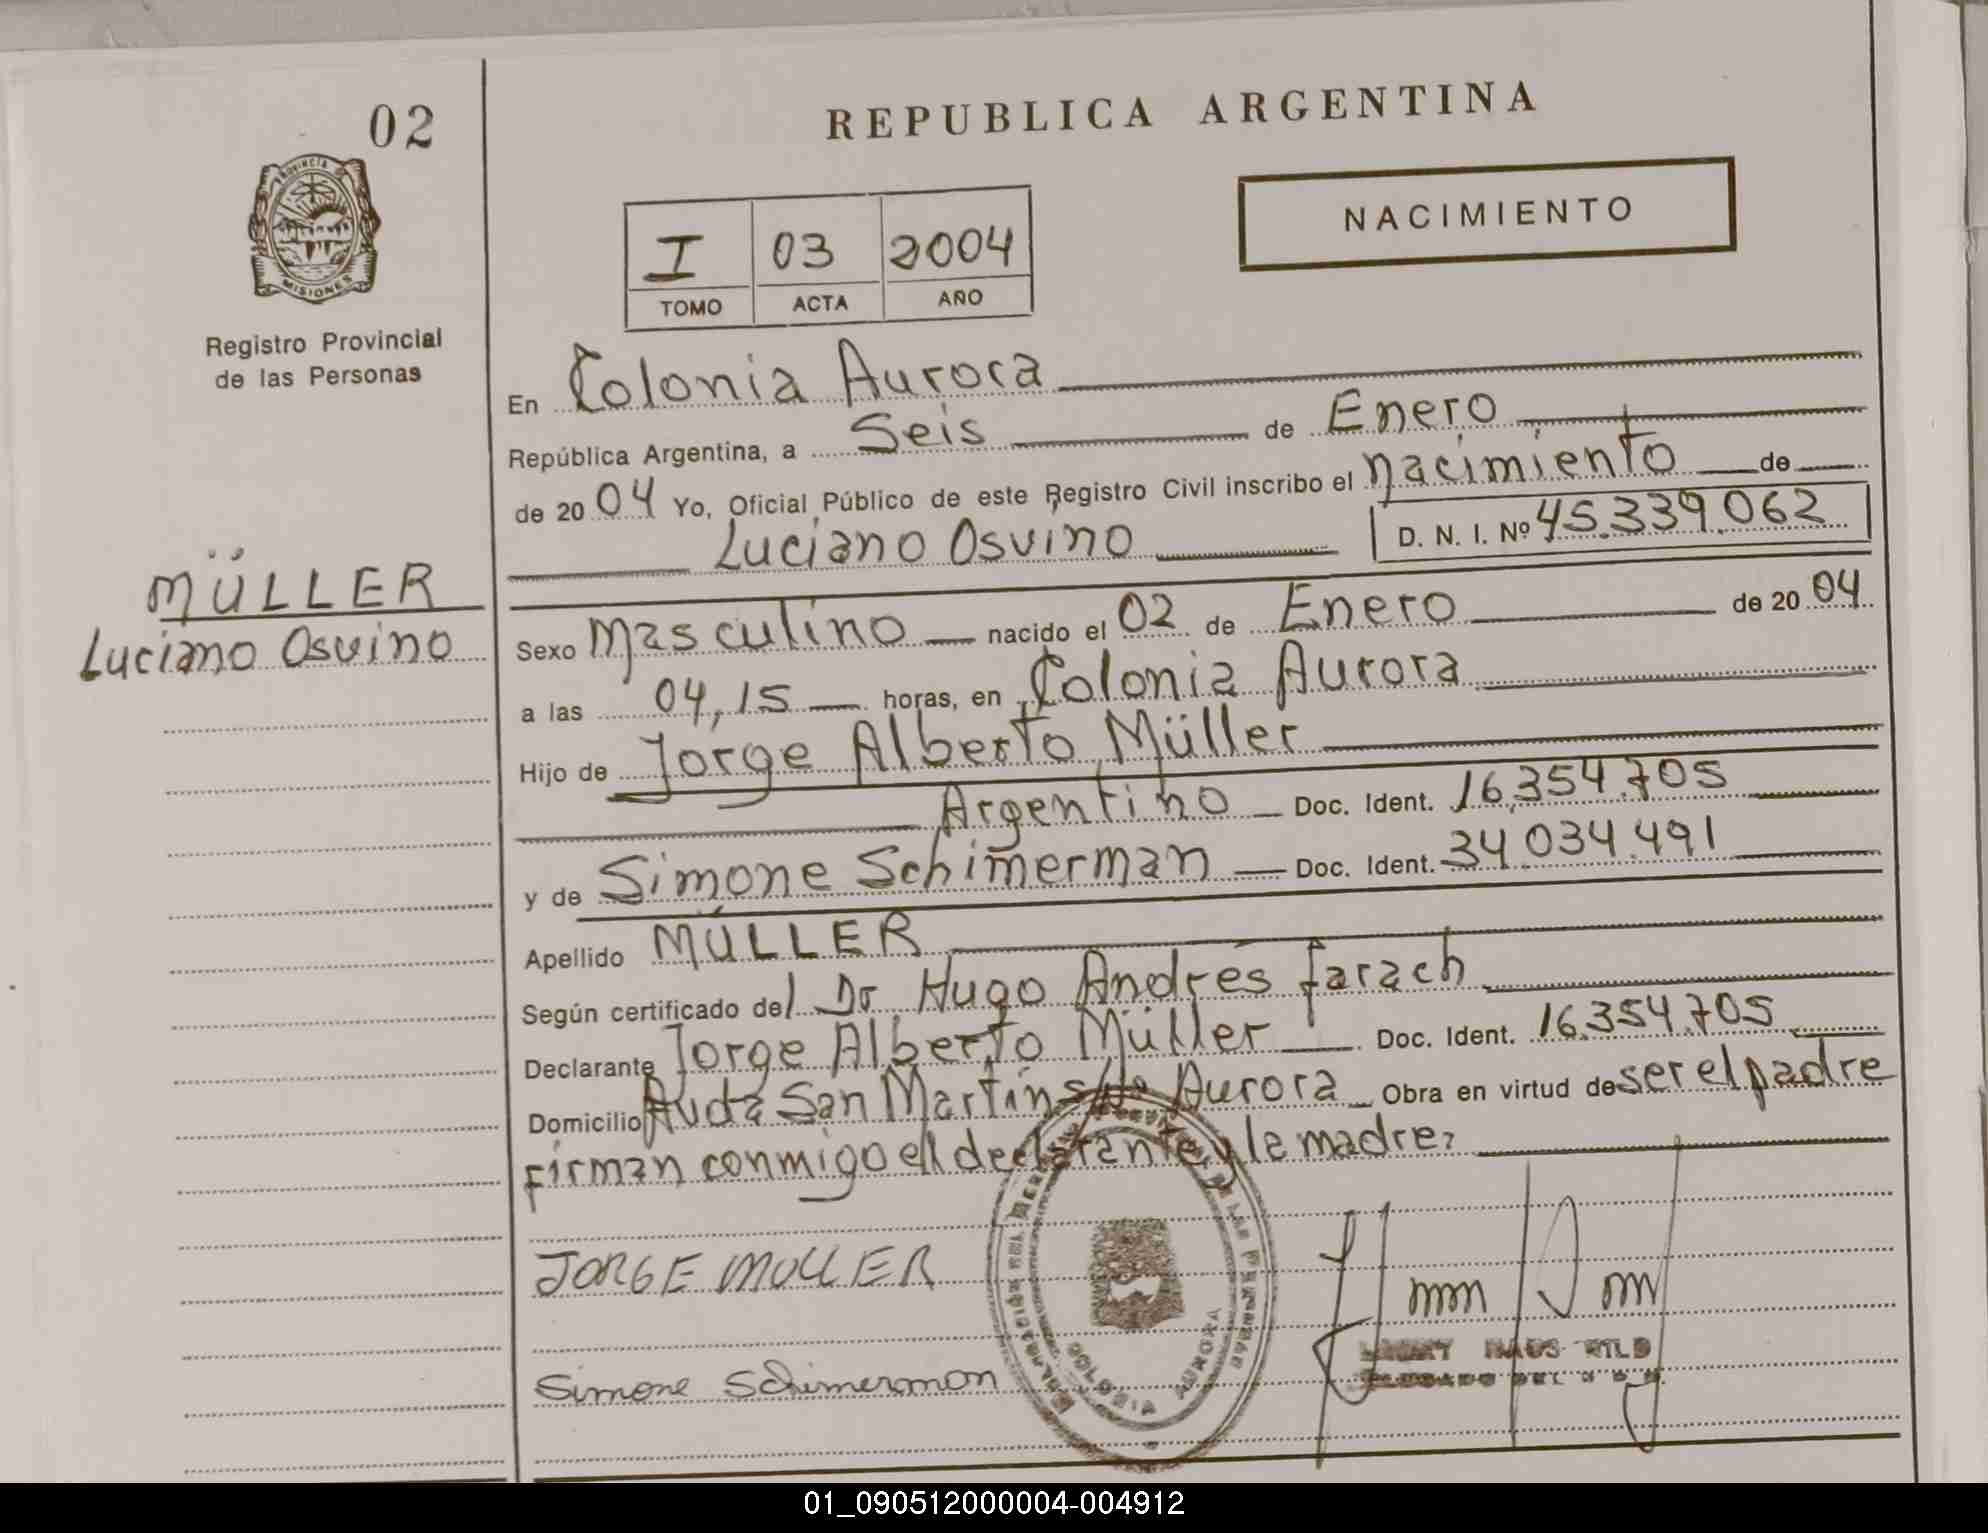 02
REPUBLICA ARGENTINA
PROVINCIA DE
MISIONES
Registro Provincial
de las Personas
NACIMIENTO
I 03 2004
TOMO ACTA AÑO
MÜLLER
Luciano Osvino
En Colonia Aurora
República Argentina, a Seis de Enero
de 2004 Yo, Oficial Público de este Registro Civil inscribo el nacimiento de
Luciano Osvino D. N. I. Nº 45.339.062
Sexo Masculino nacido el 02 de Enero de 2004
a las 04,15 horas, en Colonia Aurora
Hijo de Jorge Alberto Müller
Argentino Doc. Ident. 16.354.705
y de Simone Schimerman Doc. Ident. 34.034.491
Apellido MÜLLER
Según certificado del Dr Hugo Andrés farach
Declarante Jorge Alberto Müller Doc. Ident. 16.354.705
Domicilio Avda San Martín s/nº Aurora Obra en virtud de ser el padre
Firman conmigo el declarante y la madre
JORGE MULLER
Simone Schimerman
COLONIA AURORA
01_090512000004-004912